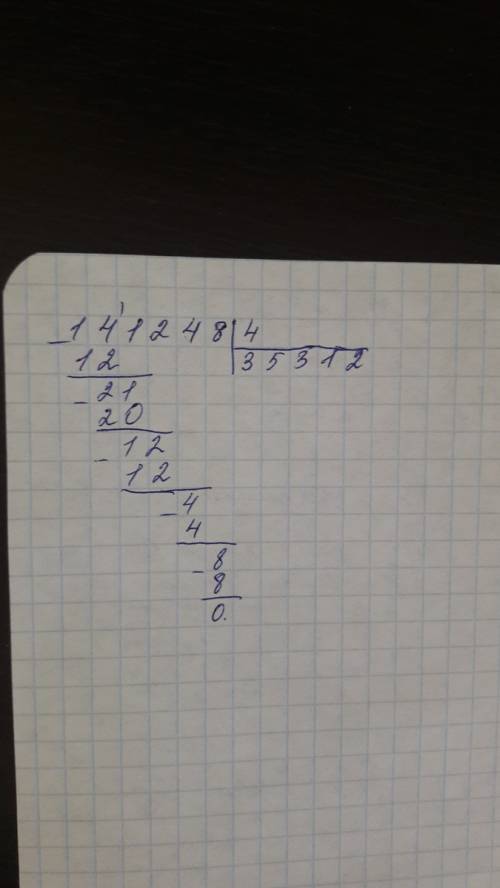 141248|4
12 35312
-21
20
-12
12
-4
4
-8
8
0.